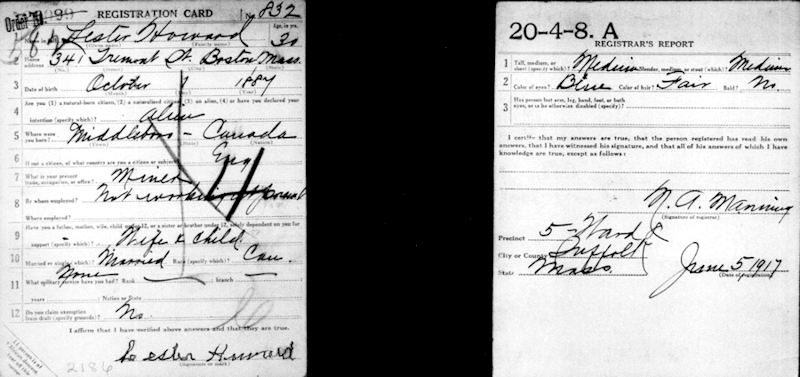 REGISTRATION CARD No. 832
Order No.
Lester Howard Age, in yrs. 30
(Given name) (Family name)
2 address 341 Tremont St. Boston Mass.
(No.) (Street) (City) (State)
3 Date of birth October 1 1887
(Month) (Day) (Year)
4 Are you (1) a natural-born citizen, (2) a naturalized citizen, (3) an alien, (4) or have you declared your
intention (specify which)? Alien
5 Where were you born? Middleboro - Canada
(Town) (State) (Nation)
6 If not a citizen, of what country are you a citizen or subject? Eng
7 What is your present trade, occupation, or office? Miner
8 By whom employed? Not working at present
Where employed?
9 Have you a father, mother, wife, child under 12, or a sister or brother under 12, solely dependent on you for
support (specify which)? Wife & child
10 Married or single (which)? Married Race (specify which)? Cau.
11 What military service have you had? Rank None branch
years Nation or State
12 Do you claim exemption from draft (specify grounds)? No
I affirm that I have verified above answers and that they are true.
Lester Howard
(Signature or mark)
2186
20-4-8. A
REGISTRAR'S REPORT
1 Tall, medium, or short (specify which)? Medium Slender, medium, or stout (which)? Medium
2 Color of eyes? Blue Color of hair? Fair Bald? No
3 Has person lost arm, leg, hand, foot, or both
eyes, or is he otherwise disabled (specify)?
I certify that my answers are true, that the person registered has read his own
answers, that I have witnessed his signature, and that all of his answers of which I have
knowledge are true, except as follows:
N. A. Manning
(Signature of registrar)
Precinct 5 - Ward
City or County Suffolk
State Mass. June 5, 1917
(Date of registration)